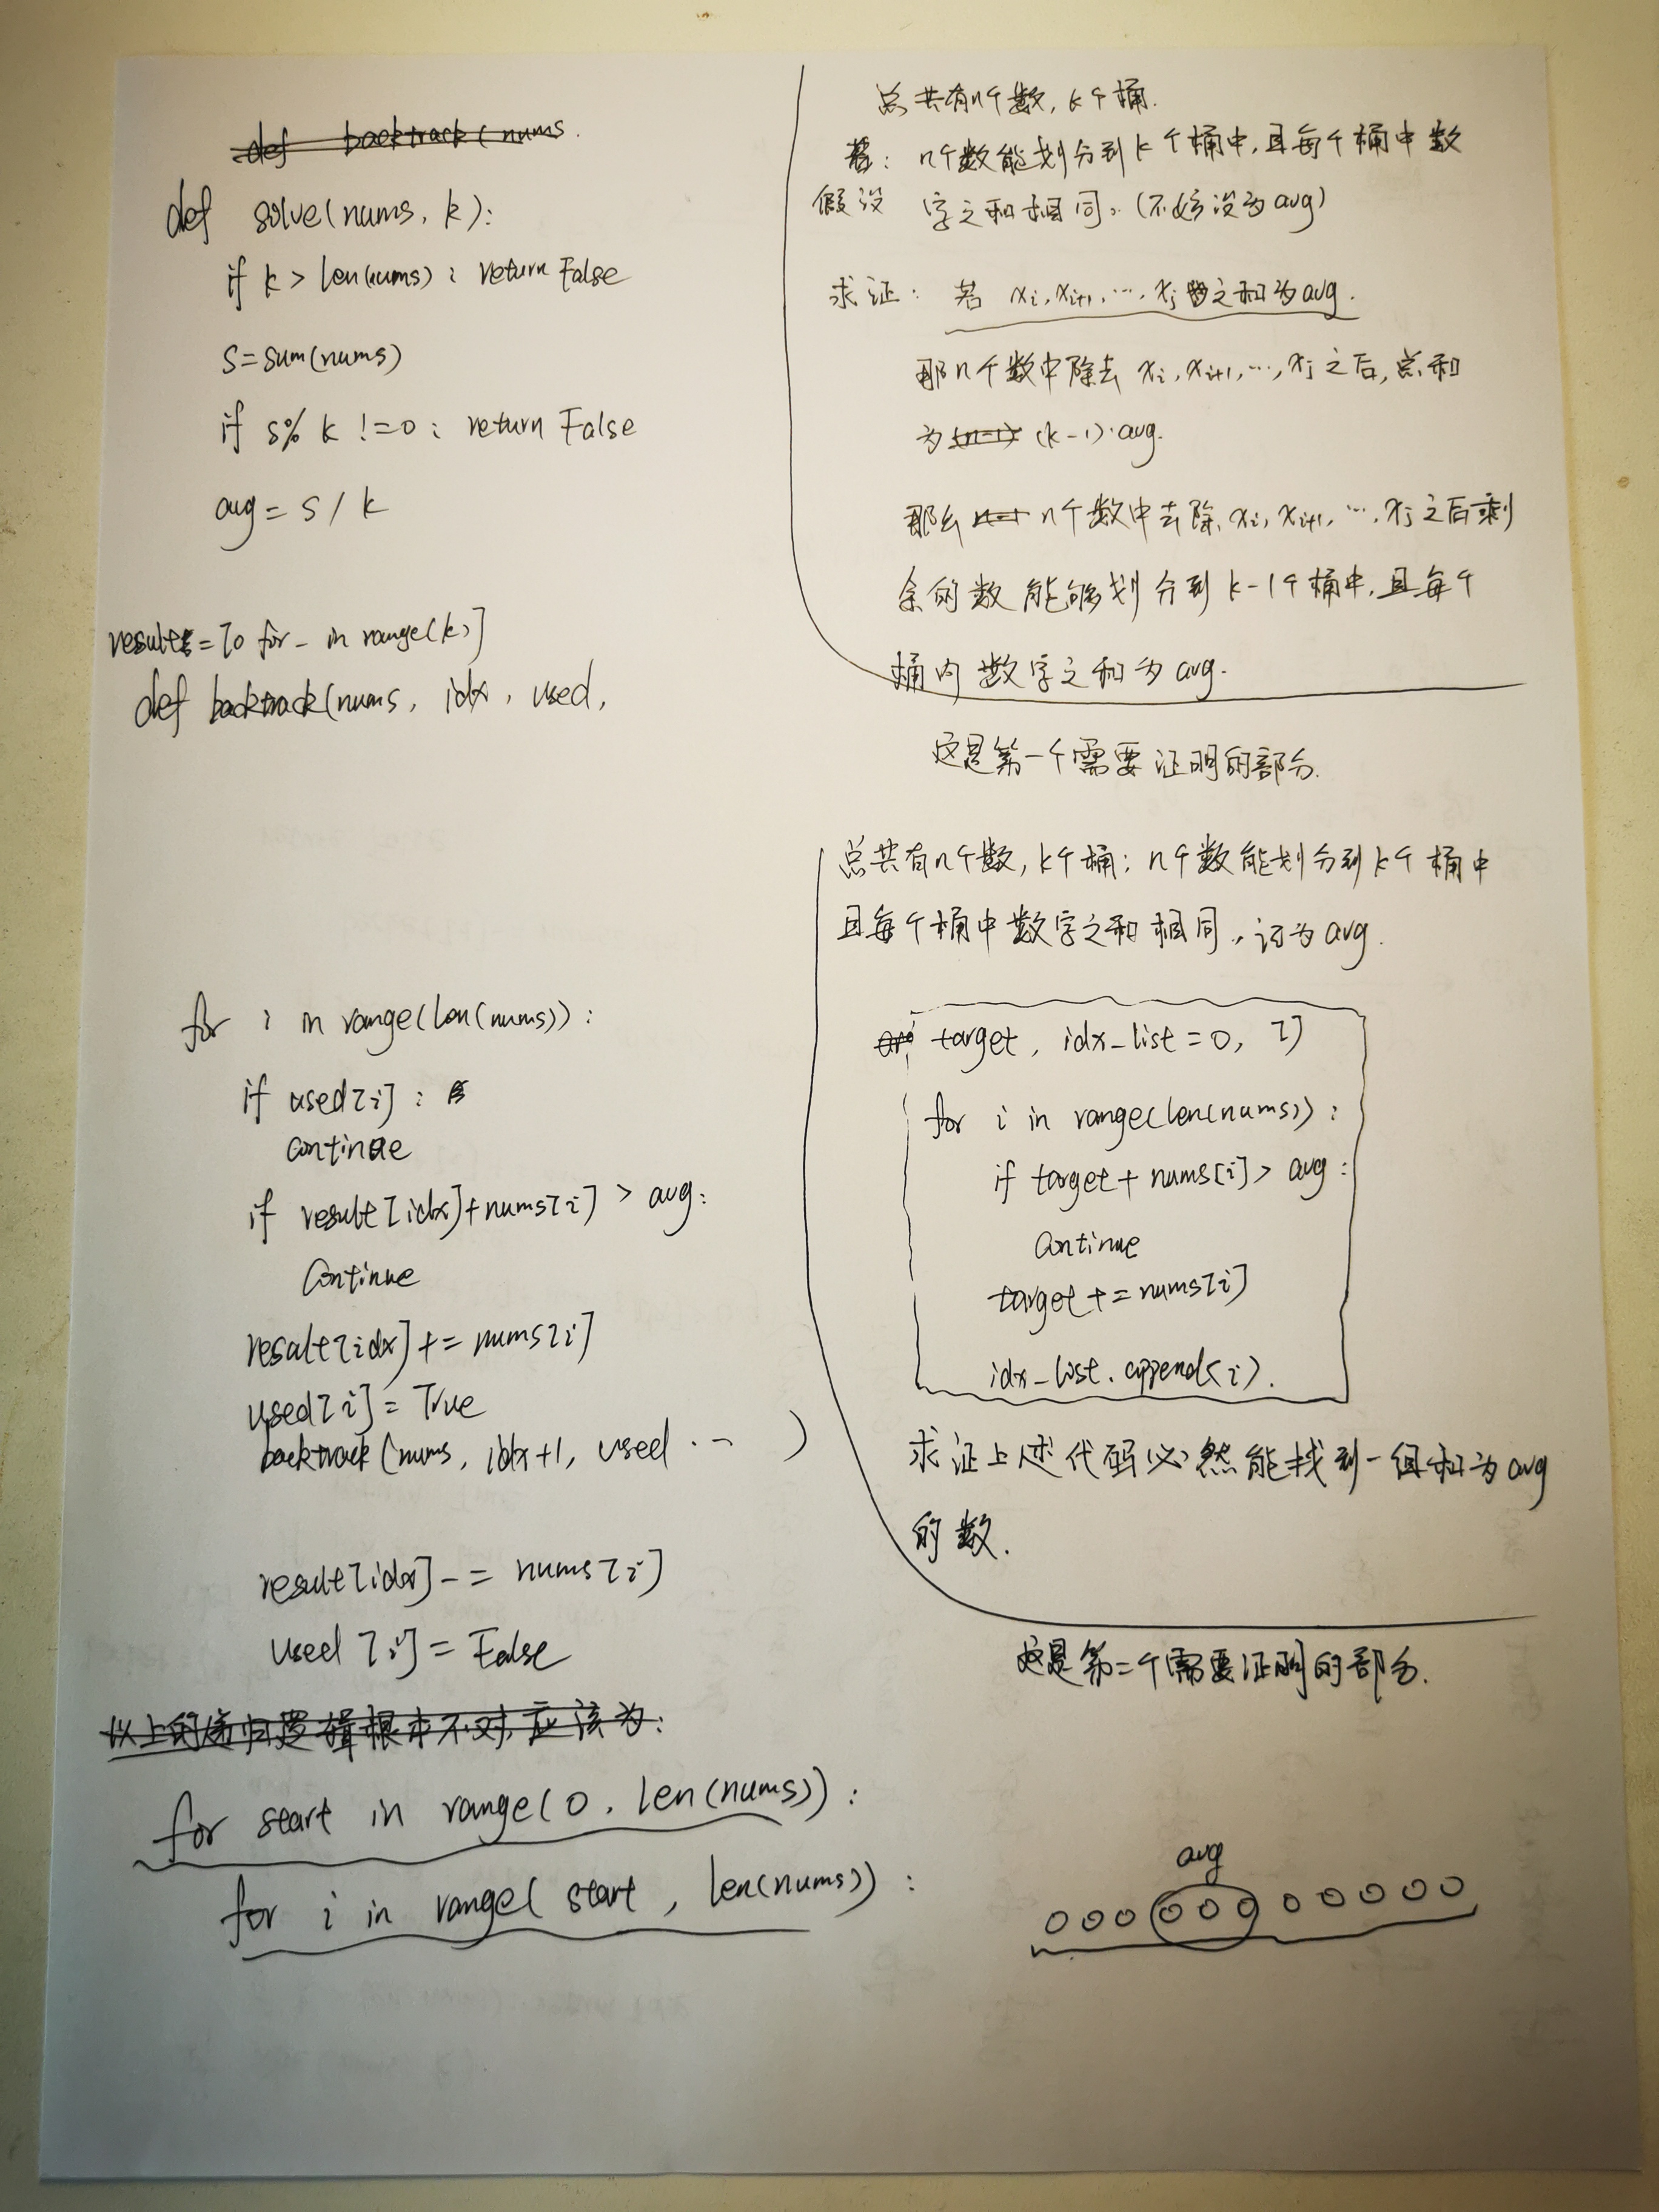 def backtrack(nums
def solve(nums, k):
if k > len(nums): return False
s=sum(nums)
if s% k !=0: return False
avg = s / k
result = [0 for _ in range(k)]
def backtrack(nums, idx, used,
for i in range(len(nums)):
if used[i]:
continue
if result[idx]+nums[i] > avg:
continue
result[idx] += nums[i]
used[i] = True
backtrack(nums, idx+1, used ... )
result[idx] -= nums[i]
used[i] = False
以上的递归逻辑根本不对,应该为:
for start in range(0, len(nums)):
for i in range(start, len(nums)):
总共有n个数, k个桶.
若: n个数能划分到k个桶中,且每个桶中数
假设 字之和相同。(不妨设为avg)
求证: 若 xi, xi+1, ..., xj 之和为avg.
那n个数中除去 xi, xi+1, ..., xj 之后,总和
为(n-1) (k-1)·avg.
那么 n个数中去除 xi, xi+1, ..., xj 之后剩
余的数能够划分到k-1个桶中,且每个
桶内数字之和为avg.
这是第一个需要证明的部分.
总共有n个数, k个桶; n个数能划分到k个桶中
且每个桶中数字之和相同,记为avg.
target, idx_list = 0, []
for i in range(len(nums)):
if target + nums[i] > avg:
continue
target += nums[i]
idx_list.append(i).
求证上述代码必然能找到一组和为avg
的数.
这是第二个需要证明的部分.
avg